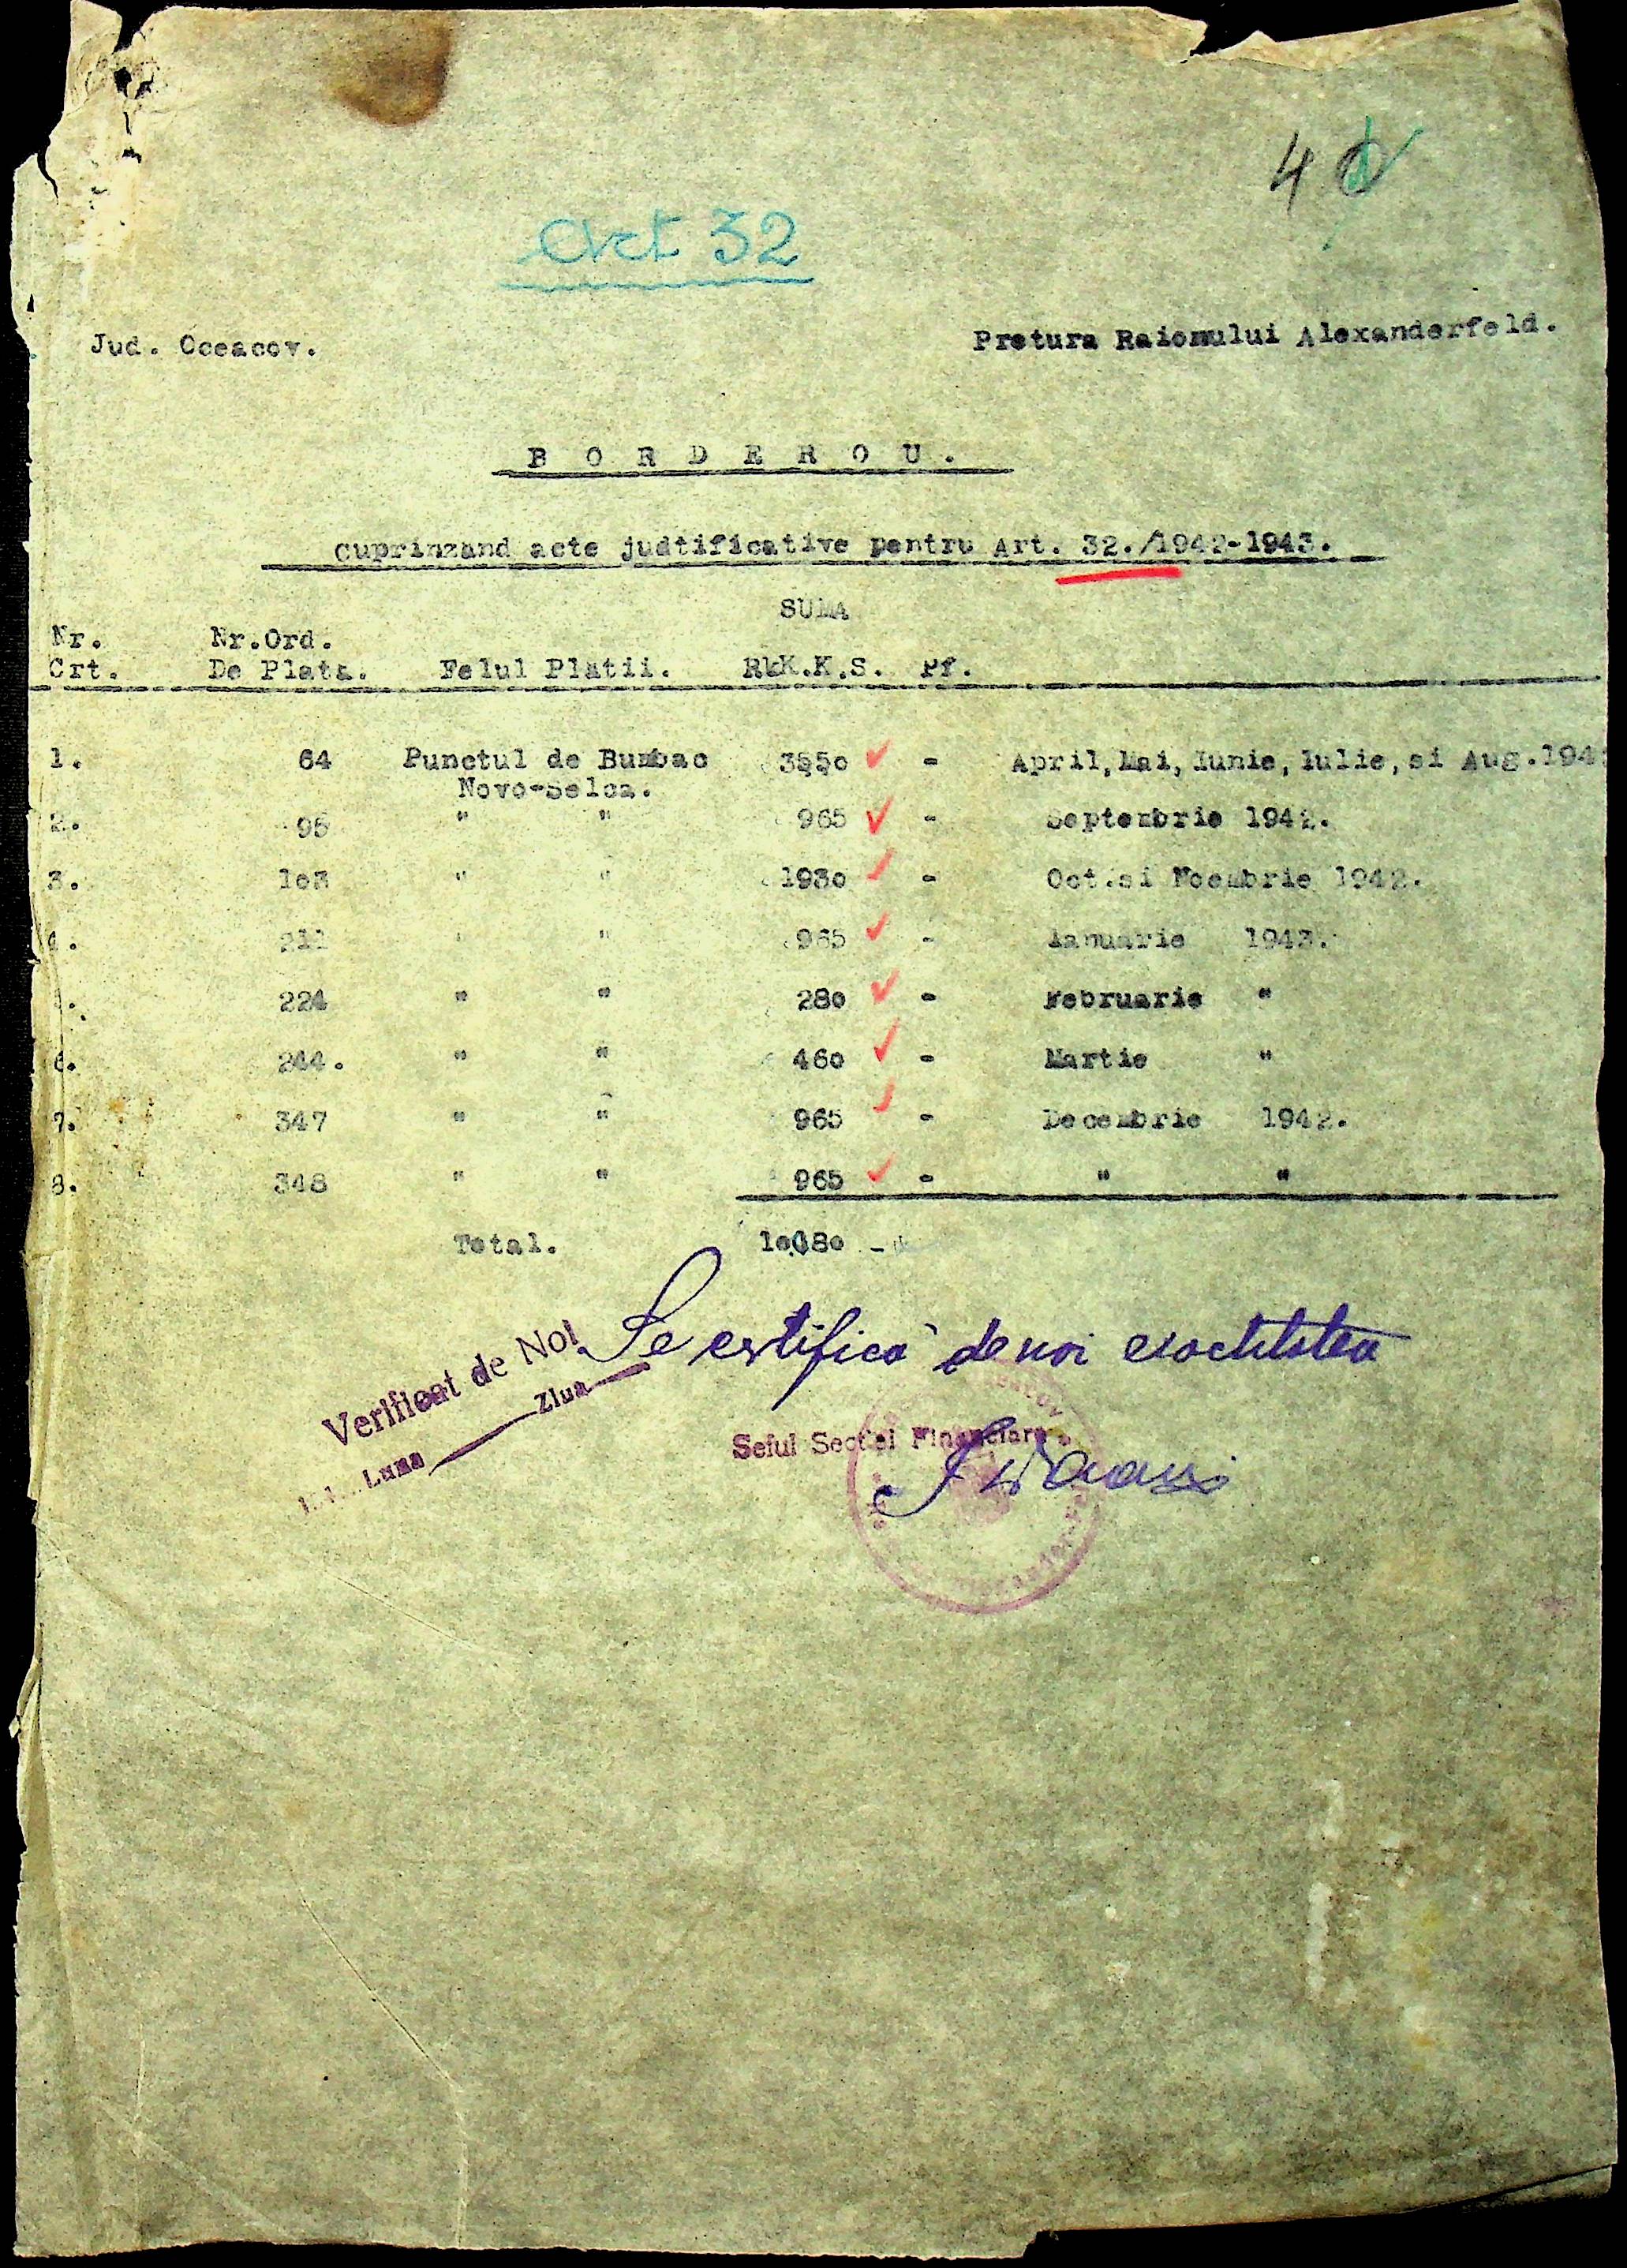 4
Art 32
Jud. Oceacov.
Pretura Raionului Alexanderfeld.
B O R D E R O U .
Cuprinzand acte judtificative pentru Art. 32./1942-1943.
SUMA
Nr. Nr.Ord.
Crt. De Plata. Felul Platii. RkK.K.S. Pf.
1. 64 Punctul de Bumbac 3550 - April, Mai, Iunie, Iulie, si Aug.194
Novo-Selca.
2. 95 " " 965 - Septembrie 1942.
3. 1o3 " " 193o - Oct.si Noembrie 1942.
4. 211 " " 965 - Ianuarie 1943.
224 " " 28o - Februarie "
6. 244. " " 46o - Martie "
7. 347 " " 965 - Decembrie 1942.
8. 348 " " 965 - " "
Total. 1oo8o -
Se certifică de noi exactitatea
Verificat de Noi
Luna Ziua
Seful Sectei Financiare